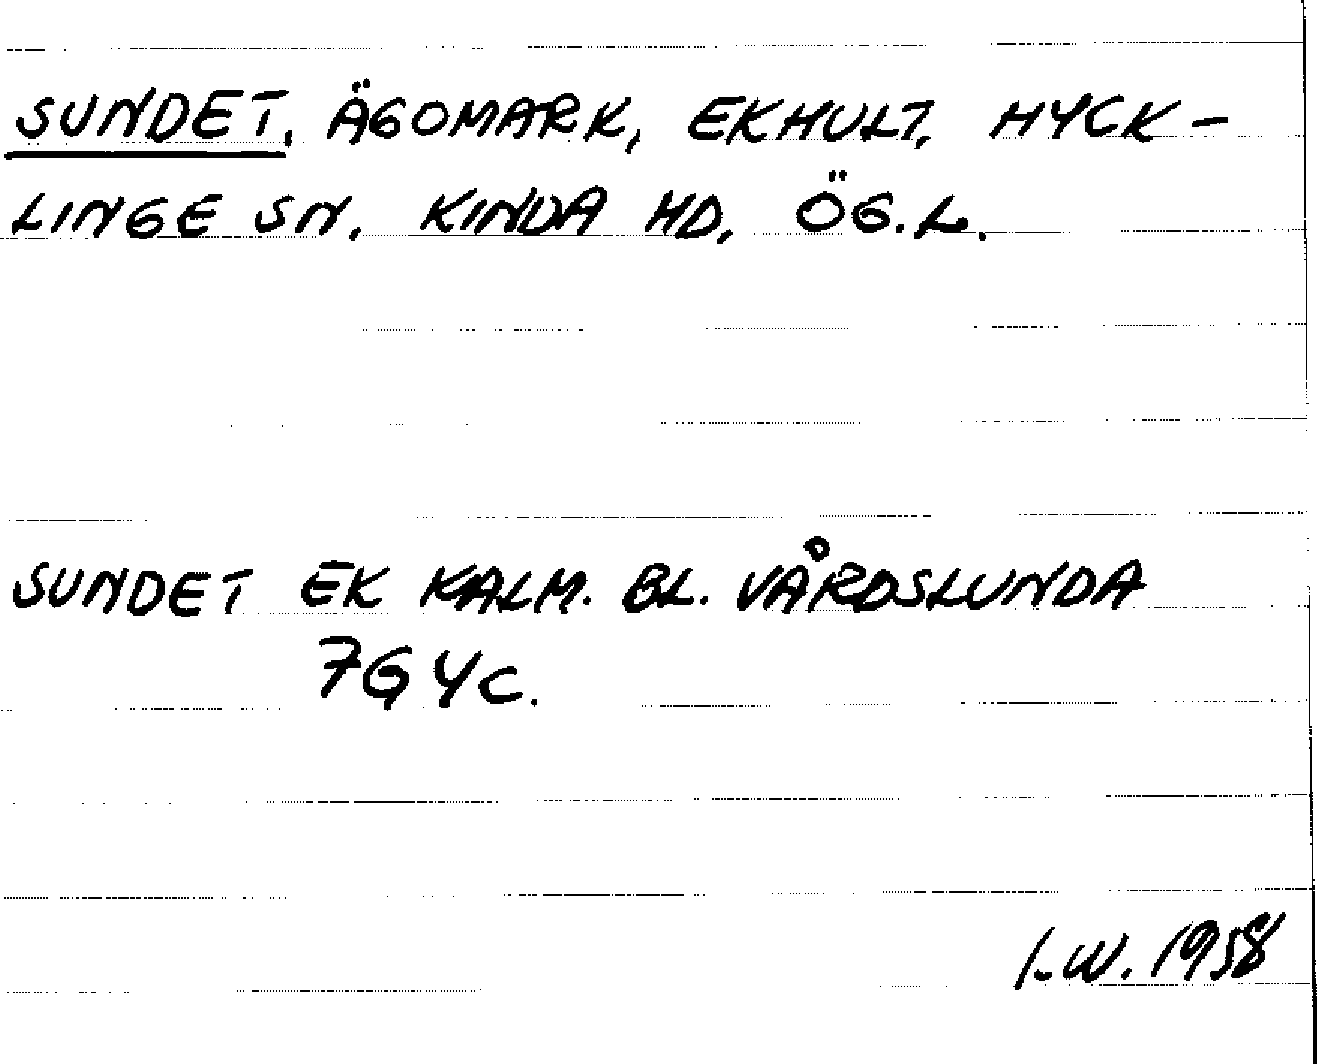 SUNDET, ÄGOMARK, EKHULT, HYCK-
LINGE SN. KINDA HD, ÖG.L.
SUNDET EK KALM. BL. VÅRDSLUNDA
7G4c.
I.W. 1958